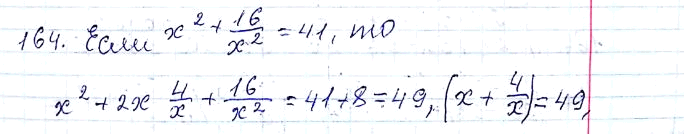 164. Если x² + 16/x² = 41, то
x² + 2x 4/x + 16/x² = 41 + 8 = 49, (x + 4/x) = 49,